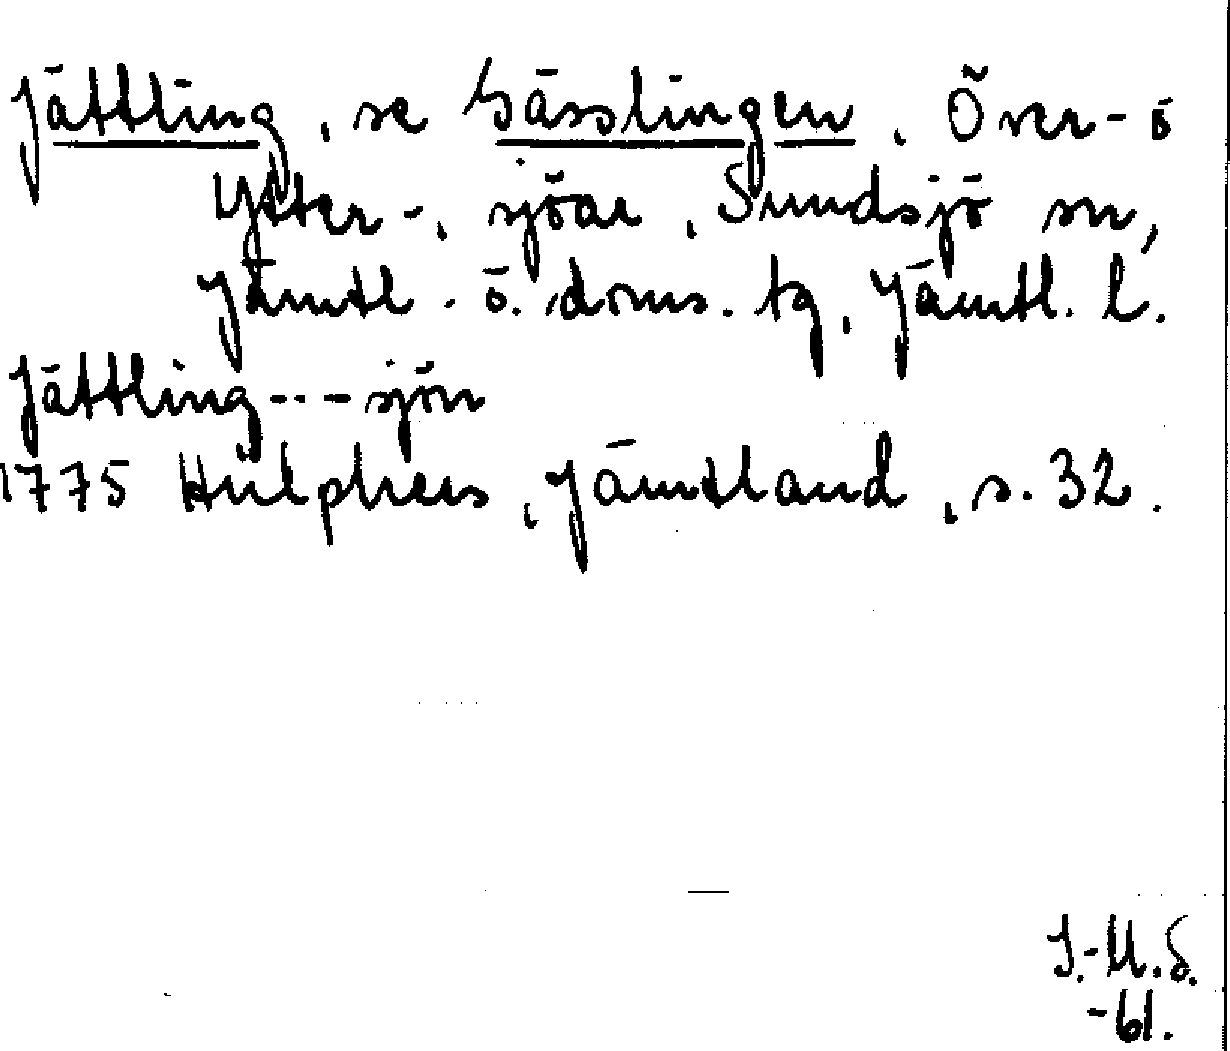 Jättling, se Gässlingen, Över- o
Ytter-, sjöar, Sundsjö sn,
Jämtl. ö. doms. tg, Jämtl. l.
Jättling--- sjön
1775 Hülphers, Jämtland, s. 32.
I.-M.S.
-61.